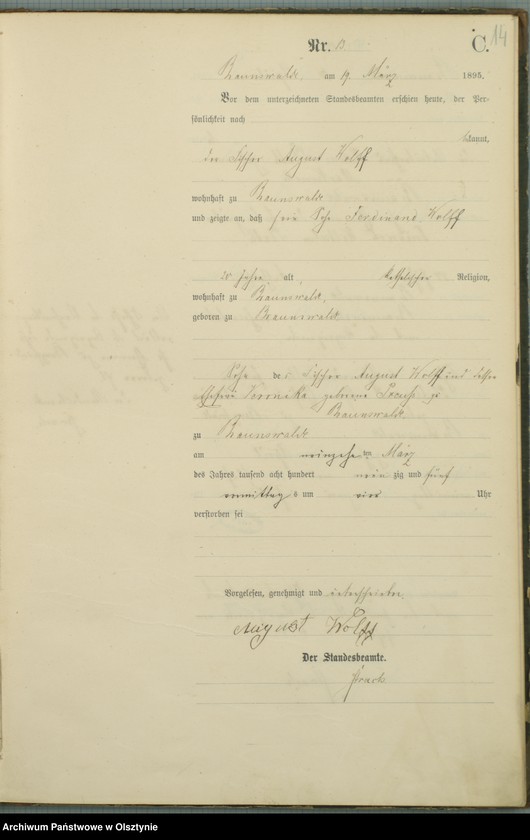 14
Nr. 13.
C.
Braunswalde am 19. März 1895.
Vor dem unterzeichneten Standesbeamten erschien heute, der Per-
sönlichkeit nach
bekannt,
der Tischler August Wolff
wohnhaft zu Braunswalde
und zeigte an, daß sein Sohn Ferdinand Wolff
Jahre alt, katholischer Religion,
wohnhaft zu Braunswalde,
geboren zu Braunswalde
Sohn des Tischler August Wolff und dessen
Ehefrau Veronika geborene zu
Braunswalde
zu Braunswalde
am neunzehnten März
des Jahres tausend acht hundert neunzig und fünf
vormittags um vier Uhr
verstorben sei
Vorgelesen, genehmigt und unterschrieben
August Wolff
Der Standesbeamte.
Archiwum Państwowe w Olsztynie